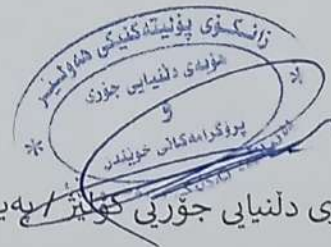 زانکۆی پۆلیتەکنیکی هەولێر
هۆبەی دڵنیایی جۆری
و
پرۆگرامەکانی خوێندن
ی دڵنیایی جۆریی کۆلێژ / بەی